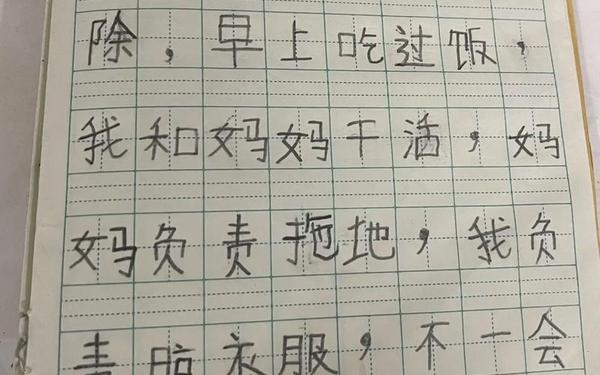 除，早上吃过饭，
我和妈妈干活，妈
妈负责拖地，我负
责脏衣服，不一会